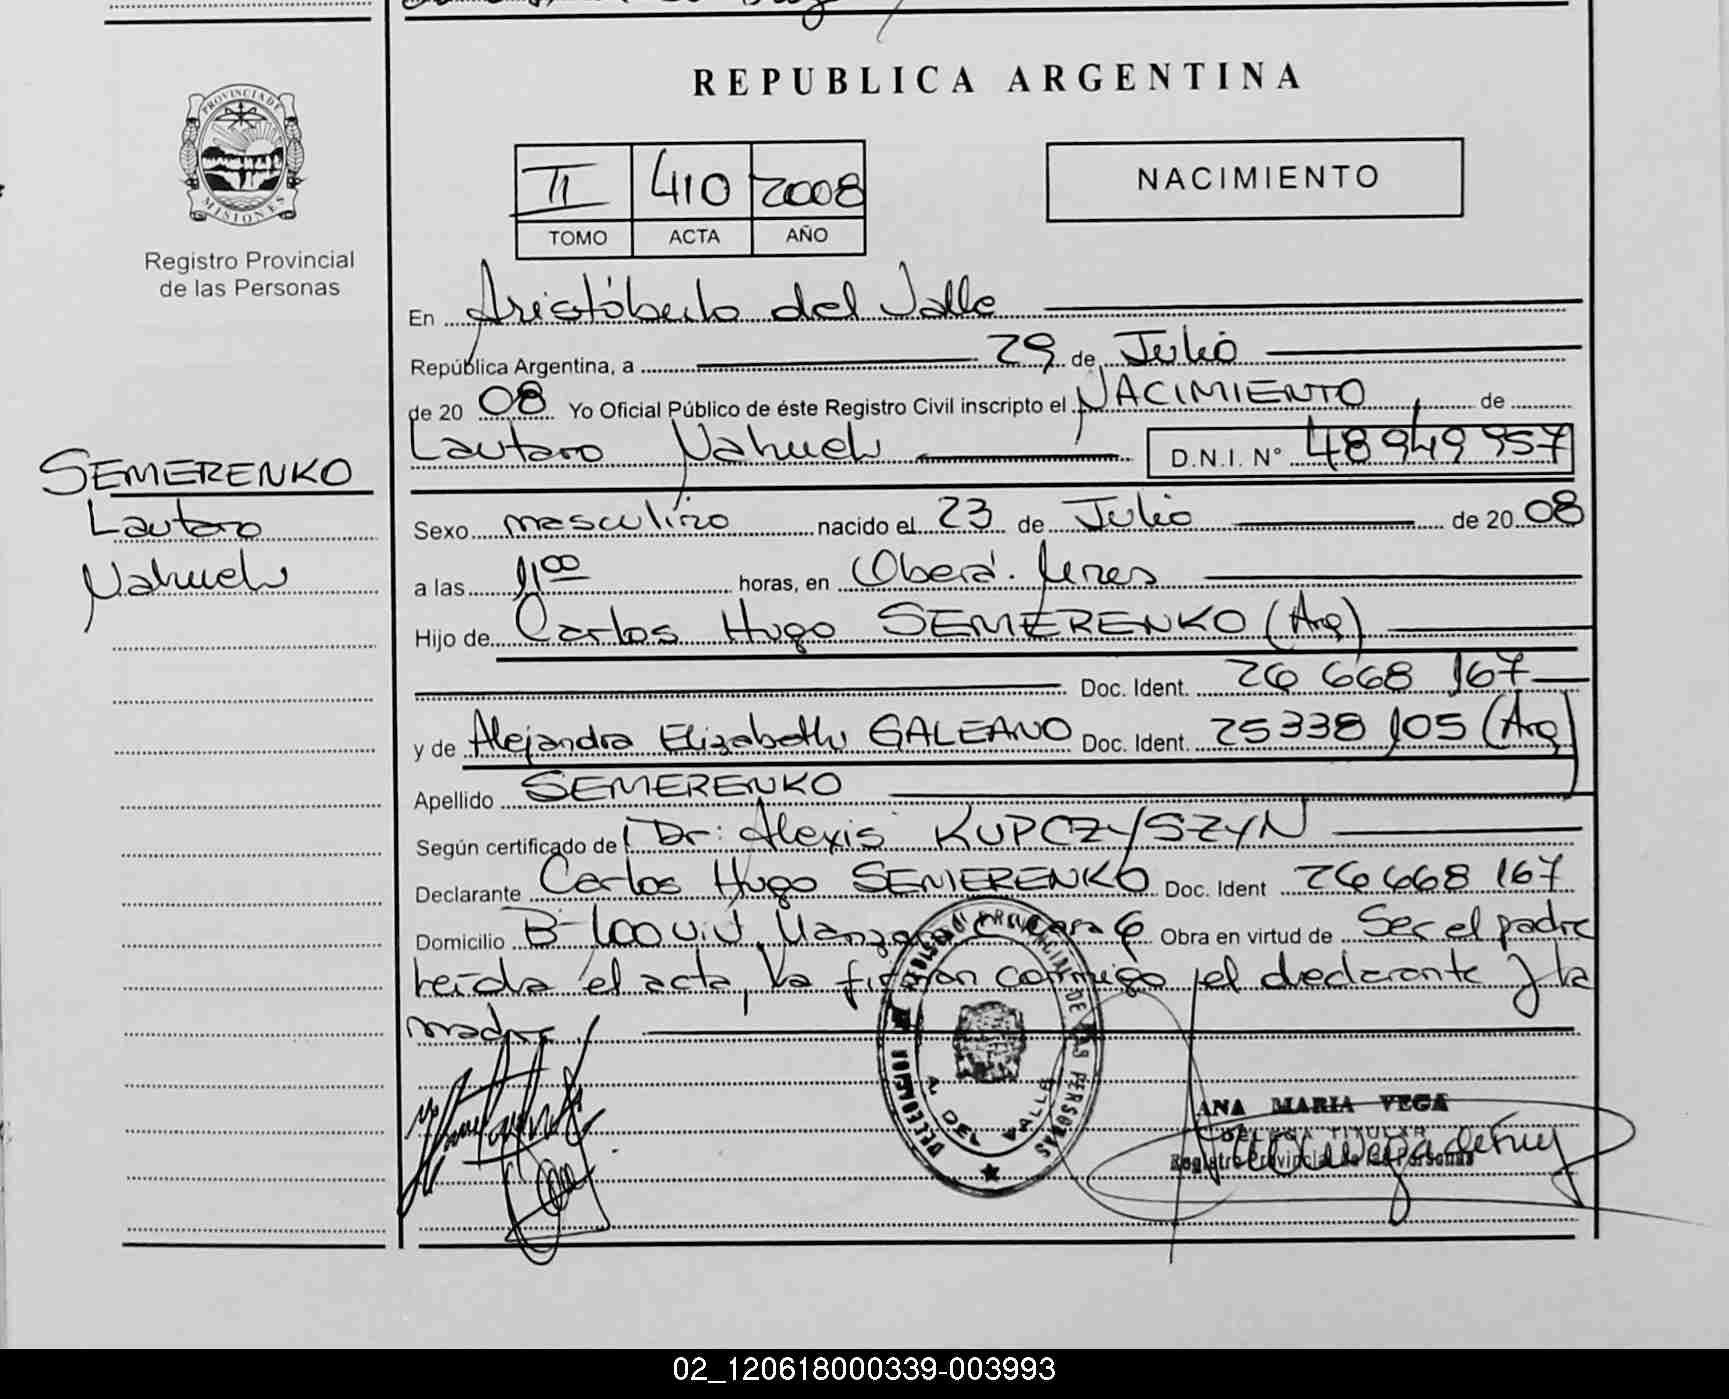 REPUBLICA ARGENTINA
PROVINCIA DE
MISIONES
Registro Provincial
de las Personas
II 410 2008
TOMO ACTA AÑO
NACIMIENTO
En Aristóbulo del Valle
República Argentina, a 29 de Julio
de 20 08 Yo Oficial Público de éste Registro Civil inscripto el NACIMIENTO de
Lautaro Nahuel D.N.I. N° 48949957
SEMERENKO
Lautaro
Nahuel
Sexo masculino nacido el 23 de Julio de 20 08
a las 11 00 horas, en Oberá.
Hijo de Carlos Hugo SEMERENKO (Arg)
Doc. Ident. 26 668 167
y de Alejandra Elizabeth GALEANO Doc. Ident. 25338 105 (Arg)
Apellido SEMERENKO
Según certificado de Dr: Alexis KUPCZYSZYN
Declarante Carlos Hugo SEMERENKO Doc. Ident 26668 167
Domicilio B- 100 viv, Manzana C Casa 6 Obra en virtud de Ser el padre
leída el acta, la firman conmigo el declarante y la
madre
DELEGACION REGISTRO PROVINCIAL DE LAS PERSONAS
A. DEL VALLE
ANA MARIA VEGA
DELEGA TITULAR
Registro Provincial de las Personas
02_120618000339-003993